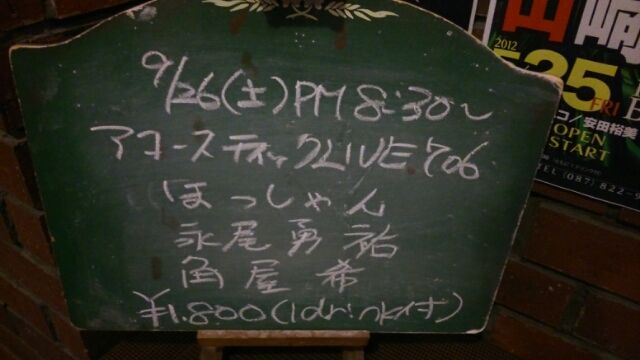 9/26(土)PM 8:30〜
アコースティックLIVE 706
ほっしゃん
永尾勇祐
角屋希
¥1.800(1drink付)
山崎
2012
5.25 FRI
コ/安田裕美
OPEN
START
TEL (087) 822-